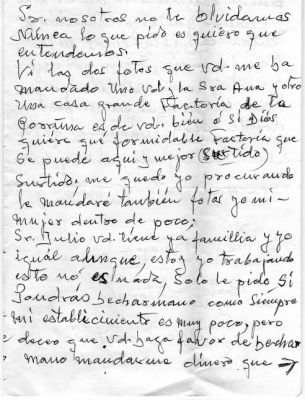 Sr. nosotros no te olvidamos
Nunca lo que pido es quiero que
entendamos.
Vi las dos fotos que vd. me ha
mandado Uno Vd. y la Sra Ana y otro
Una casa grande Factoría de la
es de vd. bien o si Dios
quiere que formidable Factoria que
Se puede aqui y mejor (Surtido)
Surtido. me quedo yo procurando
le mandaré también fotos yo mi-
mujer dentro de poco;
Sr. Julio vd. tiene ya famillia y yo
igual aunque, estoy yo trabajando
esto no es nada, Solo le pido Si
Pondrás becharmano como Siempre
mi establecimiento es muy poco, pero
deceo que Vd. haga favor de bechar
mano mandarme dinero que →